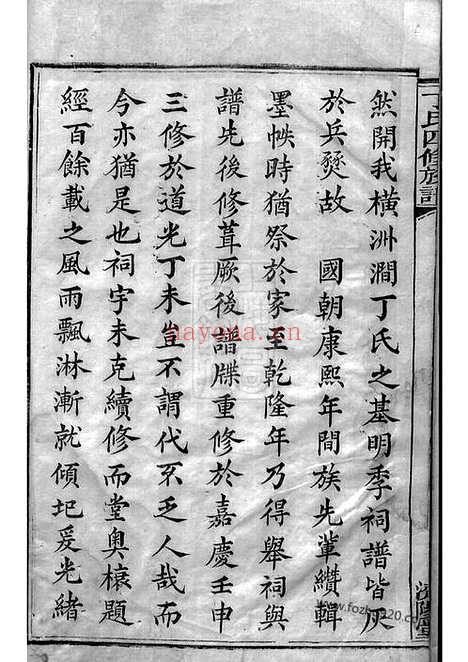 然開我橫洲澗丁氏之基明季祠譜皆灰
於兵燹故　國朝康熙年間族先輩纘輯
墨帙時猶祭於家至乾隆年乃得舉祠與
譜先後修葺厥後譜牒重修於嘉慶壬申
三修於道光丁未豈不謂代不乏人哉而
今亦猶是也祠宇未克續修而堂奧榱題
經百餘載之風雨飄淋漸就傾圮爰光緒
丁氏四修族譜
濟陽堂
nayona.cn
www.fozhu920.com